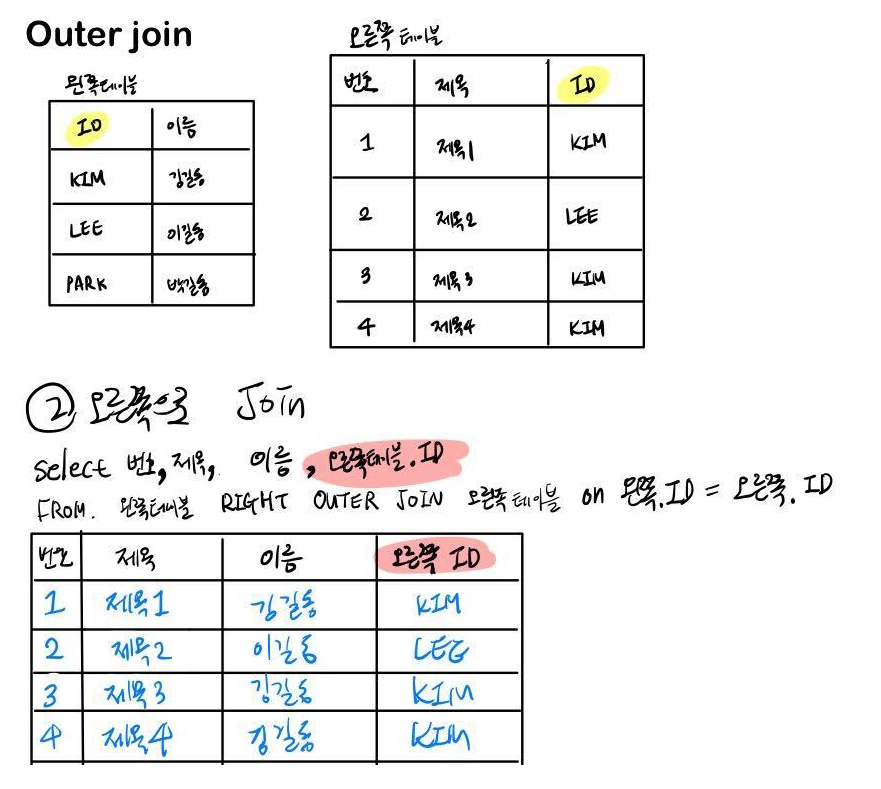 Outer join
왼쪽테이블
ID 이름
KIM 김길동
LEE 이길동
PARK 박길동
오른쪽 테이블
번호 제목 ID
1 제목1 KIM
2 제목2 LEE
3 제목3 KIM
4 제목4 KIM
② 오른쪽으로 Join
select 번호, 제목, 이름, 오른쪽테이블.ID
FROM. 왼쪽테이블 RIGHT OUTER JOIN 오른쪽테이블 on 왼쪽.ID = 오른쪽.ID
번호 제목 이름 오른쪽 ID
1 제목1 김길동 KIM
2 제목2 이길동 LEE
3 제목3 김길동 KIM
4 제목4 김길동 KIM